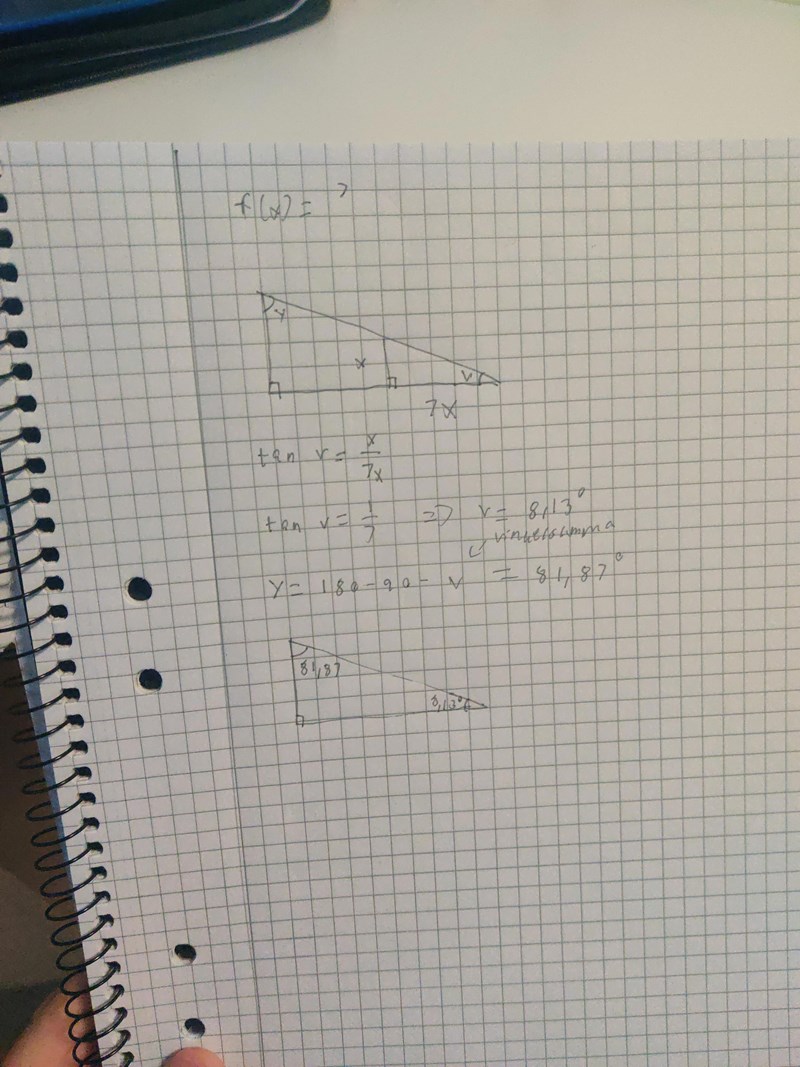 f(x) = ?
y
x
v
7x
tan v = x/7x
tan v = 1/7 => v = 8,13°
vinkelsumma
y = 180-90-v = 81,87°
81,87
8,13°